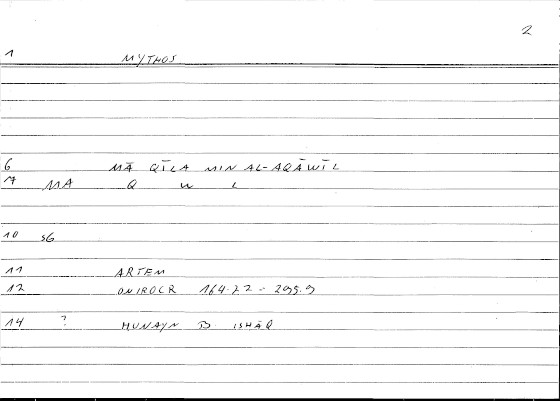 2
1 MYTHOS
6 MĀ QĪLA MIN AL-AQĀWĪL
7 MA Q W L
10 SG
11 ARTEM
12 ONIROCR 164.22 - 299.9
14 ? HUNAYN B. ISHĀQ